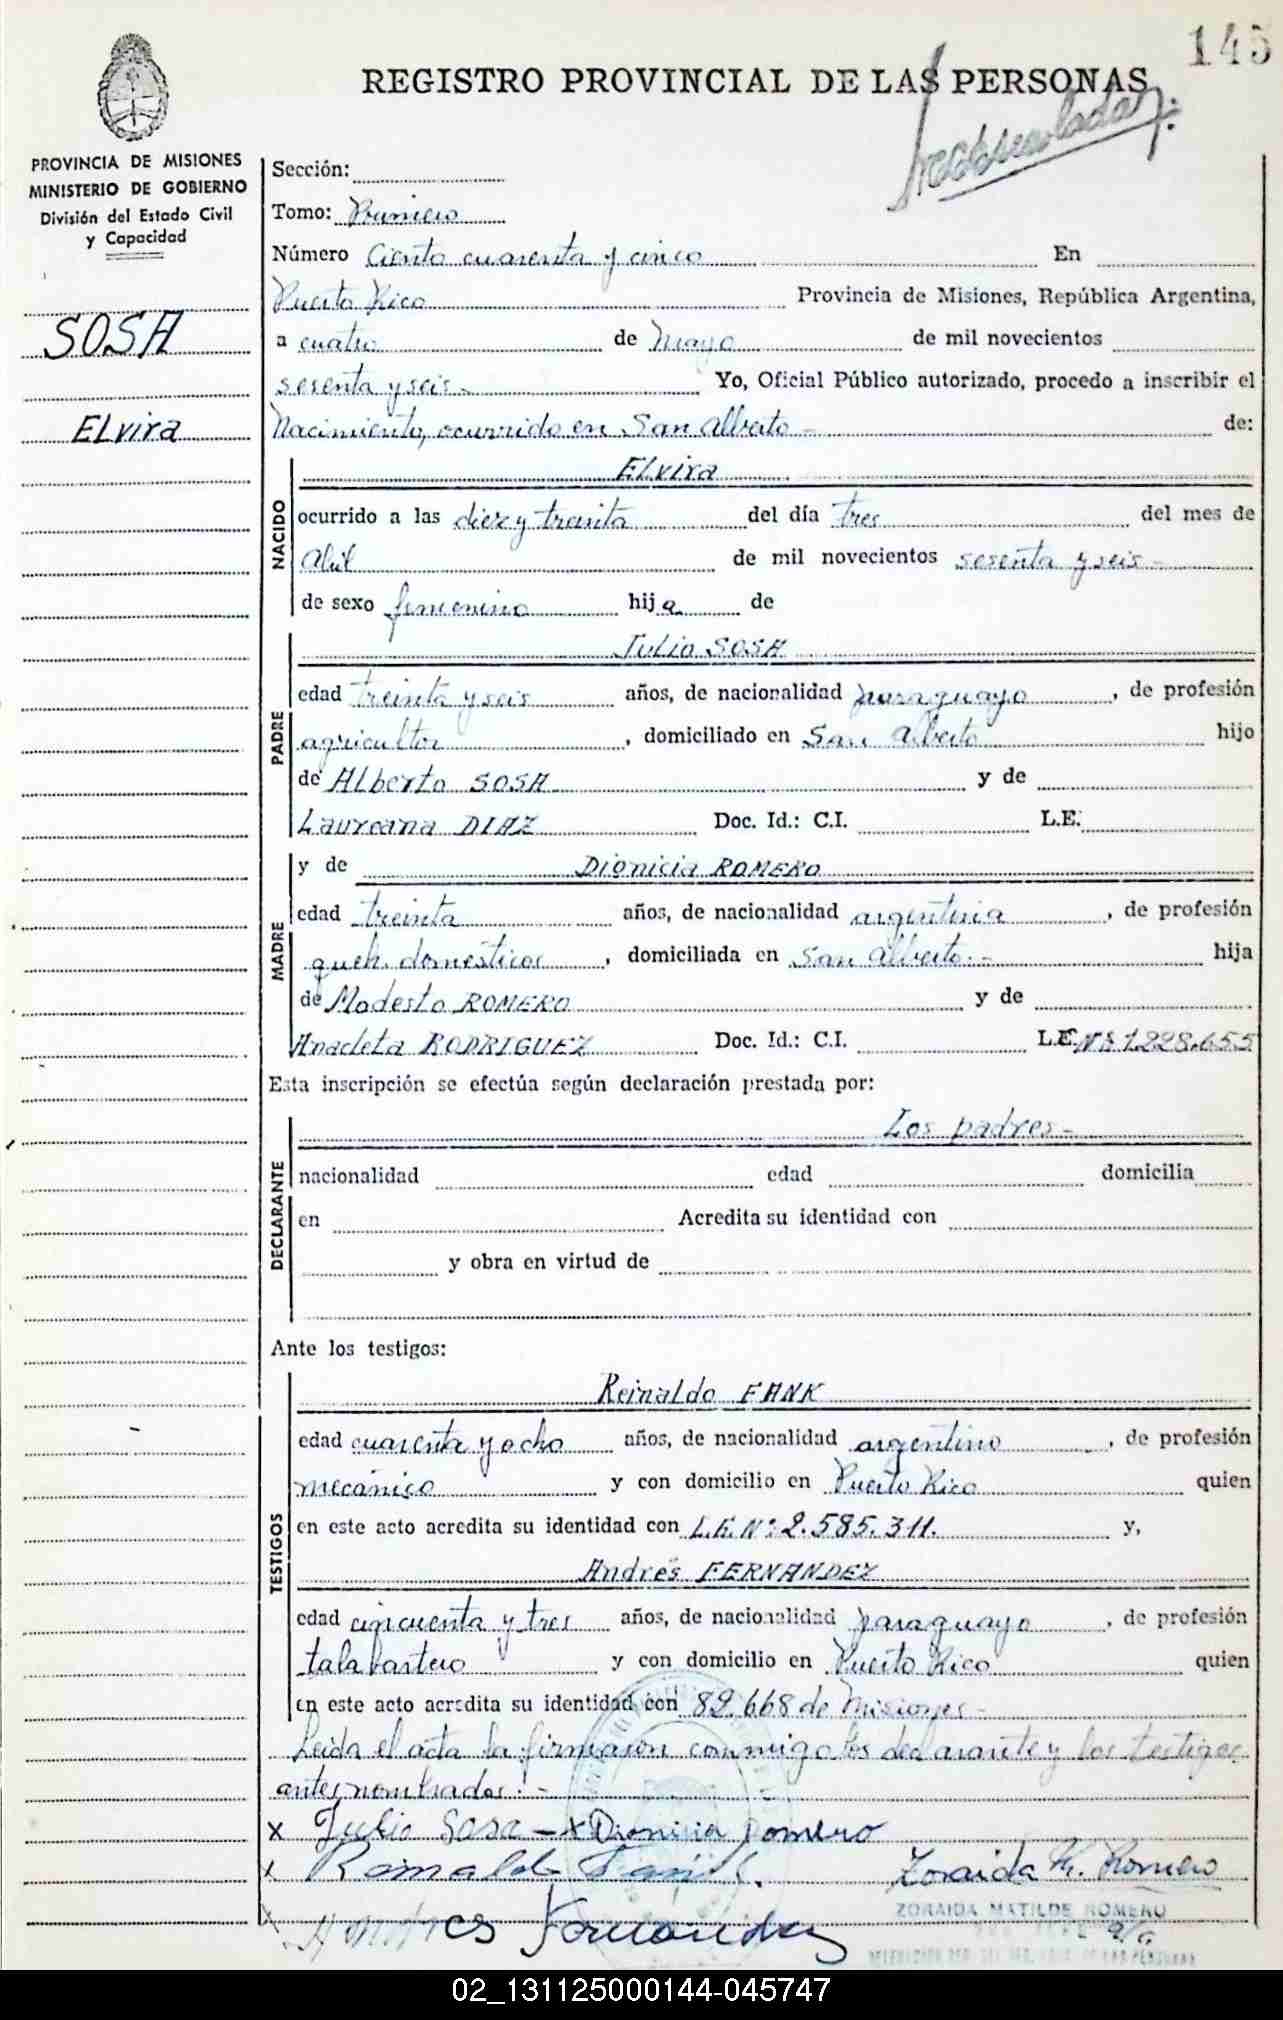 145
REGISTRO PROVINCIAL DE LAS PERSONAS
PROVINCIA DE MISIONES
MINISTERIO DE GOBIERNO
División del Estado Civil
y Capacidad
SOSA
ELvira
Sección:
Tomo: Primero
Número Ciento cuarenta y cinco En
Puerto Rico Provincia de Misiones, República Argentina,
a cuatro de Mayo de mil novecientos
sesenta y seis.- Yo, Oficial Público autorizado, procedo a inscribir el
Nacimiento, ocurrido en San Alberto - de:
NACIDO
ELvira
ocurrido a las diez y treinta del día tres del mes de
Abril de mil novecientos sesenta y seis -
de sexo femenino hija de
PADRE
Julio SOSA
edad treinta y seis años, de nacionalidad paraguayo, de profesión
agricultor, domiciliado en San Alberto hijo
de ALberto SOSA y de
Laureana DIAZ Doc. Id.: C.I. L.E.
MADRE
y de Dionicia ROMERO
edad treinta años, de nacionalidad argentina, de profesión
queh. domésticos, domiciliada en San Alberto.- hija
de Modesto ROMERO y de
Anacleta RODRIGUEZ Doc. Id.: C.I. L.E. Nº 1.228.655
Esta inscripción se efectúa según declaración prestada por:
DECLARANTE
Los padres -
nacionalidad edad domicilia
en Acredita su identidad con
y obra en virtud de
Ante los testigos:
TESTIGOS
Reinaldo FANK
edad cuarenta y ocho años, de nacionalidad argentino, de profesión
mecánico y con domicilio en Puerto Rico quien
en este acto acredita su identidad con L.E. Nº: 2.585.311. y,
Andrés FERNANDEZ
edad cincuenta y tres años, de nacionalidad paraguayo, de profesión
talabartero y con domicilio en Puerto Rico quien
en este acto acredita su identidad con 82.668 de Misiones -
Leida el acta la firmaron conmigo los declarante y los testigos
antes nombrados! -
x Julio Sosa - x Dionicia Romero
x Reinaldo Fank. Zoraida M. Romero
Andres Fernandez
ZORAIDA MATILDE ROMERO
02_131125000144-045747